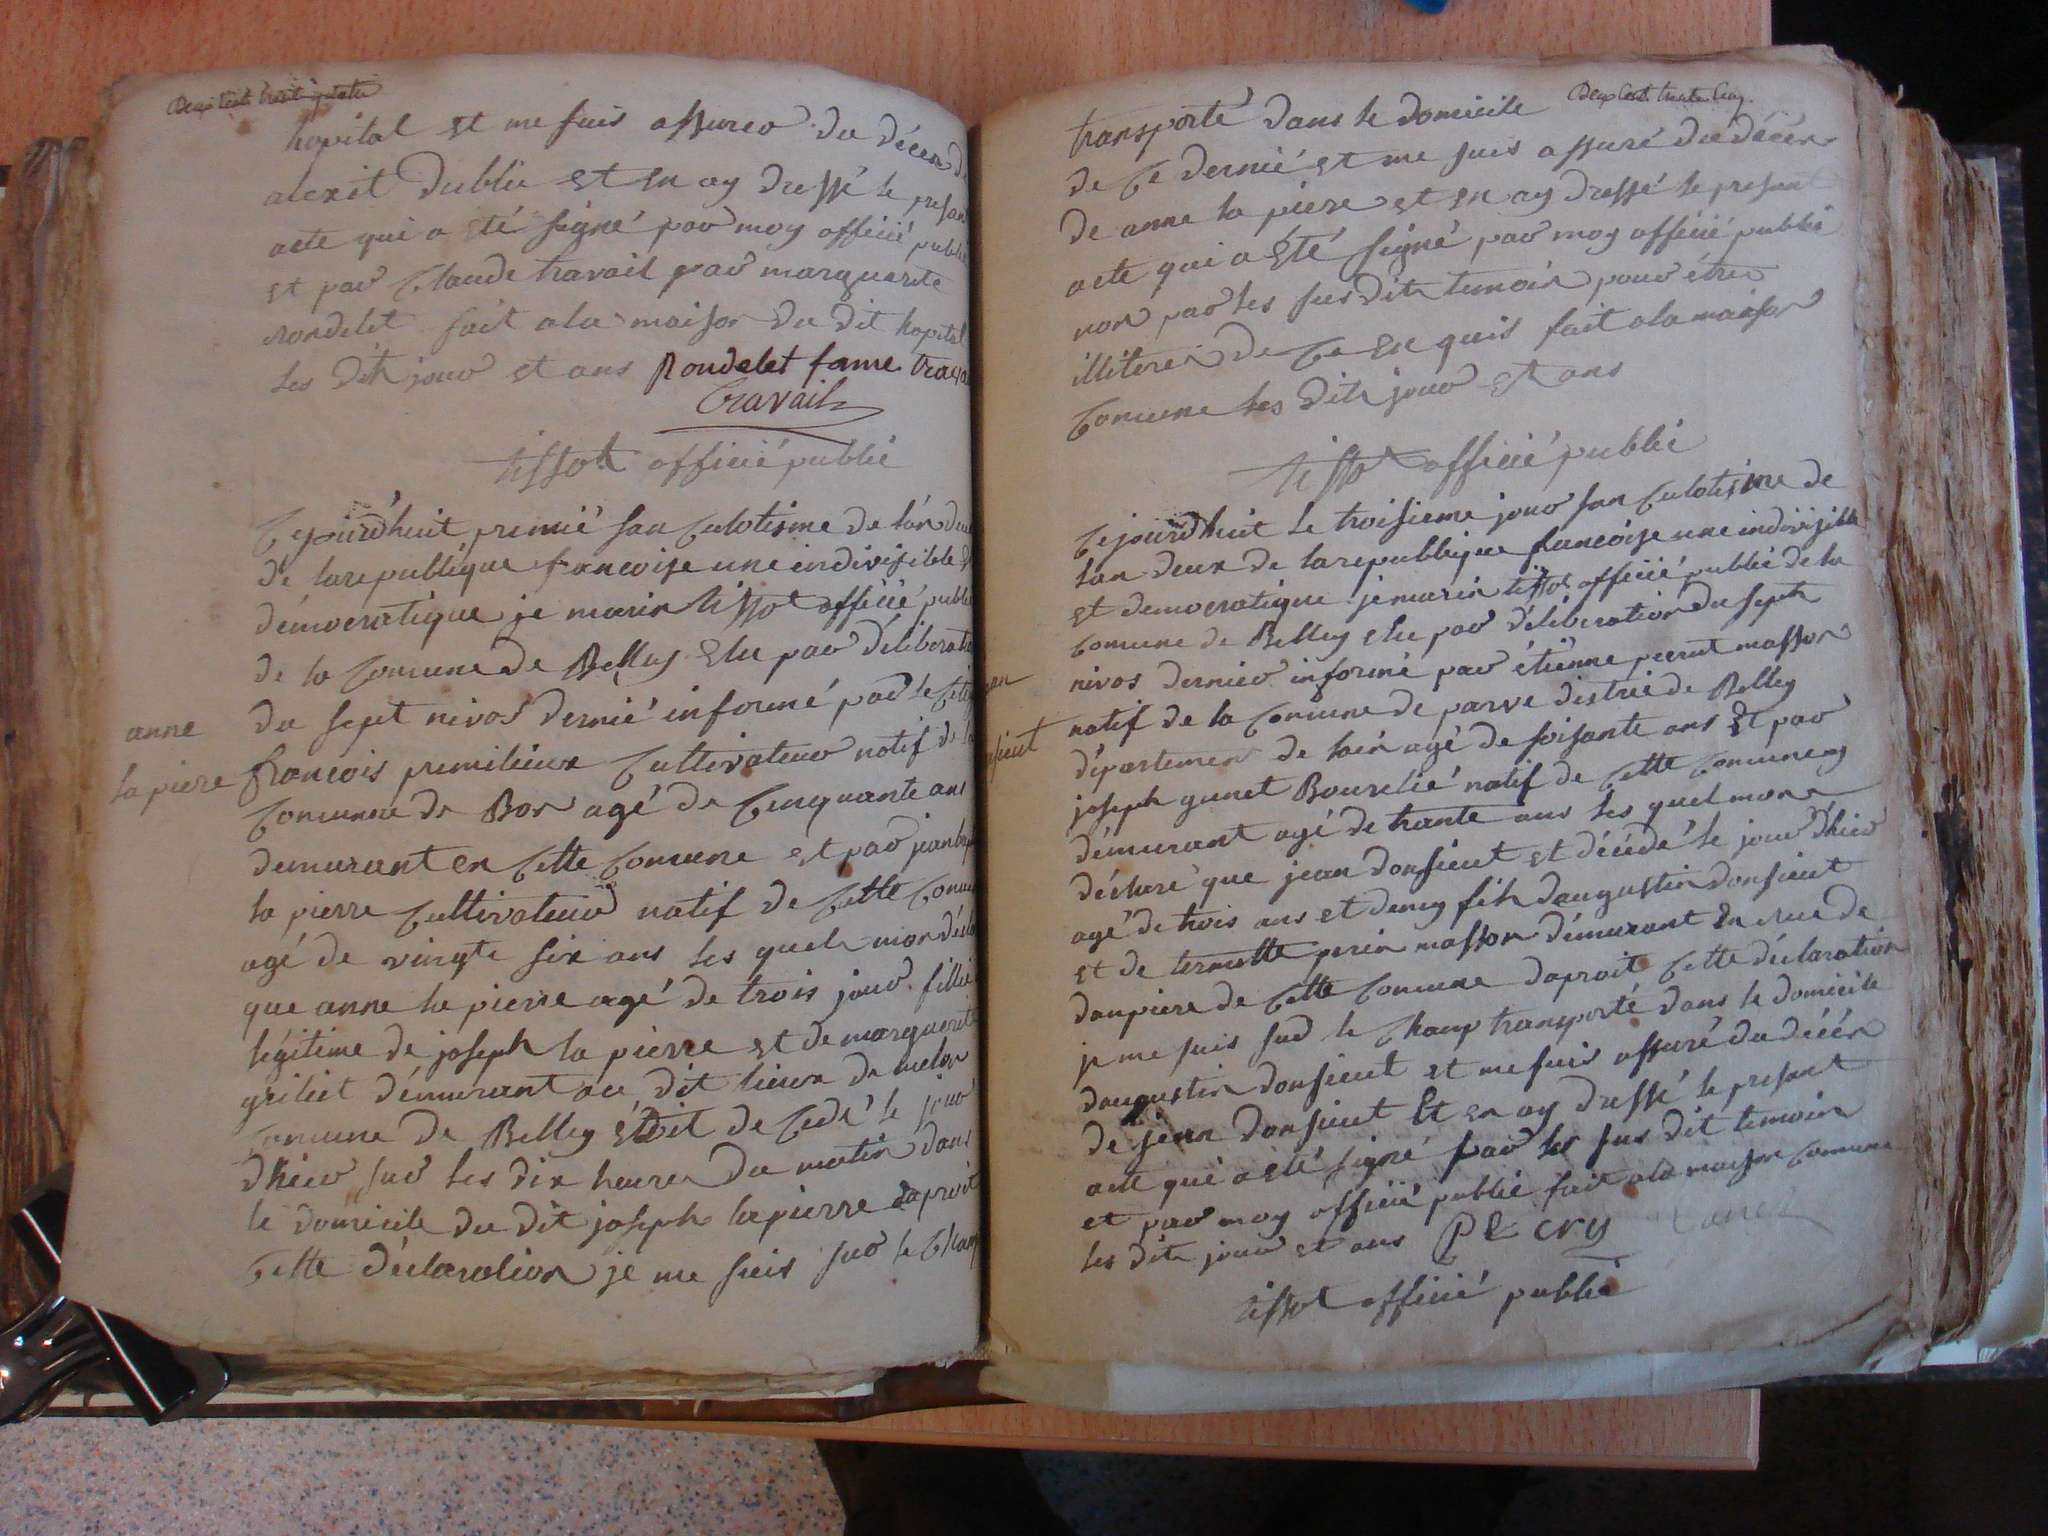 Deux Cent trente quatre
hopital et me suis assureo du décen
alexit dublie et en ay dressé le presan
acte qui a eté signé par moy officié public
et par Claude travail par marguerite
rondelet fait a la maison du dit hopital
les dit jour et ans Rondelet fame trava
Travail
tissot officié publié
Cejourd'huit premié san Culotisme de l'an deu
de la republique francoise une indivisible et
démocratique je marin tissot officié publié
de la Comune de Belley elu par délibérati
du sept nivos dernié informé par le Citoy
anne
la piere
francois premilieux Cultivateur natif de la
Comunne de Bon agé de Cinquante ans
demurant en Cette Comune et par jean
la pierre Cultivateur natif de Cette Comu
agé de vingte six ans les quels mon décla
que anne la pierre agé de trois jour fillie
légitime de joseph la pierre et de marguerit
grilliet démurant au dit lieux de melon
Comune de Belley étoit de Cedé le jour
dhier sur les dix heures du matin dans
le domicile du dit joseph la pierre daproit
Cette déclaration je me suis sur le Champ
Deux Cent trente Cinq
transporté dans le domicile
de Ce dernié et me suis assuré du décén
de anne la piere et en ay dressé le presant
acte qui a été signé par moy officié publié
non par les susdit temoin pour étre
illiteres de Ce en quis fait a la maison
Comune les dits jour et ans
tissot officié publié
Cejourd'huit le troisieme jour san Culotisme de
lan deux de la republique francoise une indivisible
et democratique je marin tissot officié publié de la
Comune de Belley elu par délibération du sept
nivos dernier informé par étienne perrut masson
natif de la Comune de parve distric de Belley
département de lain agé de soisante ans et par
joseph gunet Bourelié natif de Cette Comune y
démurant agé de trante ans les quel mon
déclaré que jean donsieut et décédé le jour d'hier
agé de trois ans et demy fils daugustin donsieut
et de termette perin masson démurant en rue de
danpiere de Cette Comune daproit Cette déclaration
je me suis sur le Champ transporté dans le domicile
daugustin donsieut et me suis assuré du décén
de jean donsieut et en ay dressé le presant
acte qui a eté signé par les sus dit temoin
et par moy officié publié fait a la maison Comune
les dits jour et ans
tissot officié publié